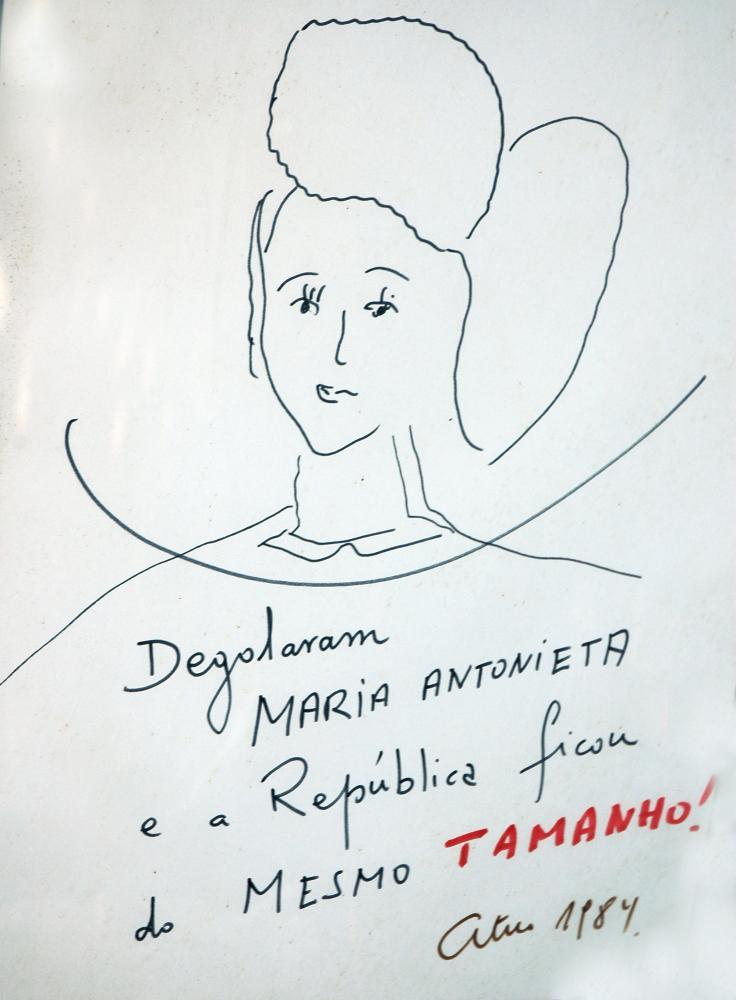 Degolaram
MARIA ANTONIETA
e a República ficou
do MESMO TAMANHO!
1984